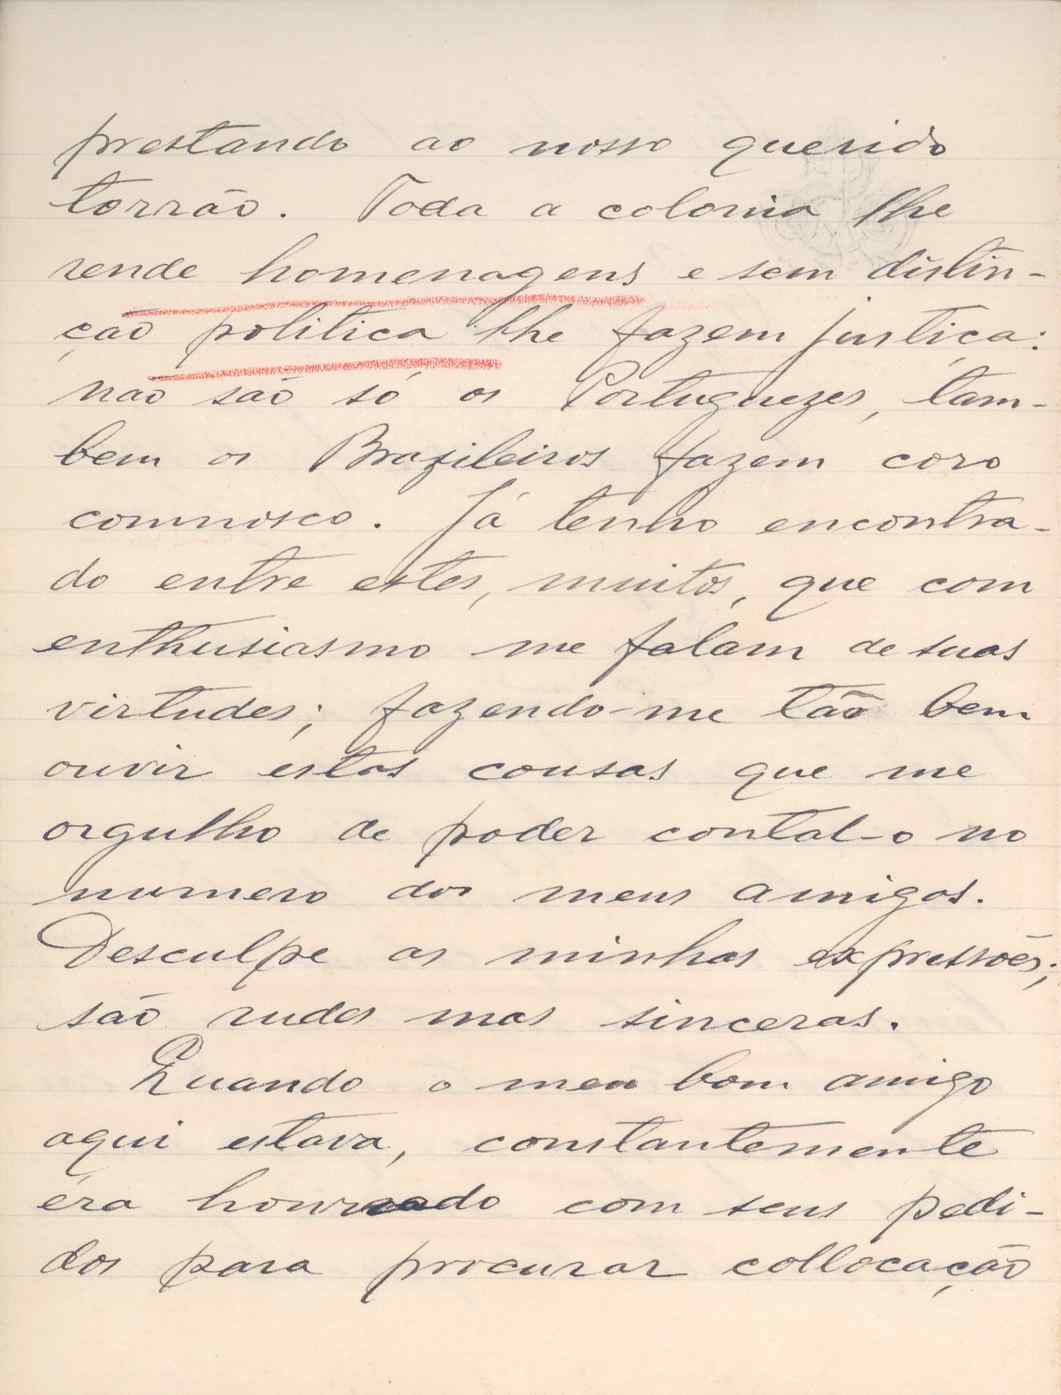 prestando ao nosso querido
torrão. Toda a colonia lhe
rende homenagens e sem distin-
ção politica lhe fazem justiça:
não são só os Portuguezes, tam-
bem os Brazileiros fazem coro
comnosco. Já tenho encontra-
do entre estes, muitos, que com
enthusiasmo me falam de suas
virtudes; fazendo-me tão bem
ouvir estas cousas que me
orgulho de poder contal-o no
numero dos meus amigos.
Desculpe as minhas expressões;
são rudes mas sinceras.
Quando o meu bom amigo
aqui estava, constantemente
éra honrado com seus pedi-
dos para procurar collocação